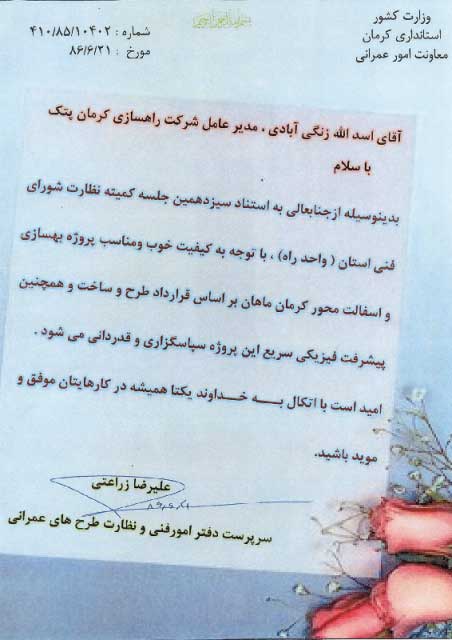 بسم الله الرحمن الرحیم
وزارت کشور
استانداری کرمان
معاونت امور عمرانی
شماره : ۴۱۰/۸۵/۱۰۴۰۲
مورخ : ۸۶/۶/۲۱
آقای اسد الله زنگی آبادی ، مدیر عامل شرکت راهسازی کرمان پتک
با سلام
بدینوسیله ازجنابعالی به استناد سیزدهمین جلسه کمیته نظارت شورای
فنی استان ( واحد راه) ، با توجه به کیفیت خوب ومناسب پروژه بهسازی
و اسفالت محور کرمان ماهان بر اساس قرارداد طرح و ساخت و همچنین
پیشرفت فیزیکی سریع این پروژه سپاسگزاری و قدردانی می شود .
امید است با اتکال به خداوند یکتا همیشه در کارهایتان موفق و
موید باشید.
علیرضا زراعتی
سرپرست دفتر امورفنی و نظارت طرح های عمرانی